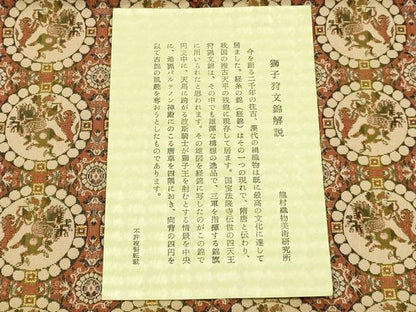 獅子狩文錦解説
龍村織物美術研究所
今を距る二千年の往古、漢代の組織物は既に最高の文化に達して
居ました。経糸の錦(経錦)はその一つの現れで、隋唐と伝わり、
我国の推古天平の残影に現存して居ます。国宝法隆寺伝世の四天王
狩猟文錦は、その中でも雄渾な構想の逸品で、三軍を指揮する錦旗
に用いられたと思われます。その雄図を経錦に写したのがこの錦で
円文中に、天馬に跨がる波斯騎士が獅子王を射むとする情景を中央
に、希臘パルテノン神殿にのこる唐草を四隅におき、向背の四円を
以て古郎の風韻を奪おうとしたものであります。
不許複製転載